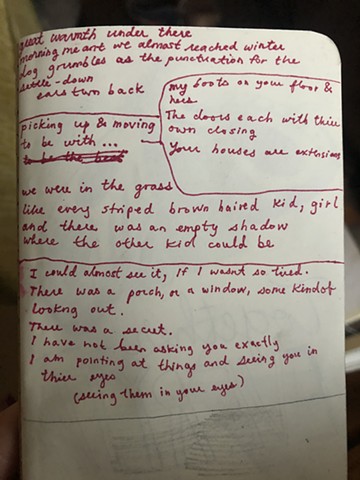 great warmth under there
morning meant we almost reached winter
dog grumbles as the punctuation for the
settle-down
ears turn back
my boots on your floor &
hers
The doors each with thier
own closing
Your houses are extensions
picking up & moving
to be with ...
to be the best
we were in the grass
like every striped brown haired kid, girl
and there was an empty shadow
where the other kid could be
I could almost see it, if I wasnt so tired.
There was a porch, or a window, some kindof
lookng out.
There was a secret.
I have not been asking you exactly
I am pointing at things and seeing you in
thier eyes
(seeing them in your eyes)